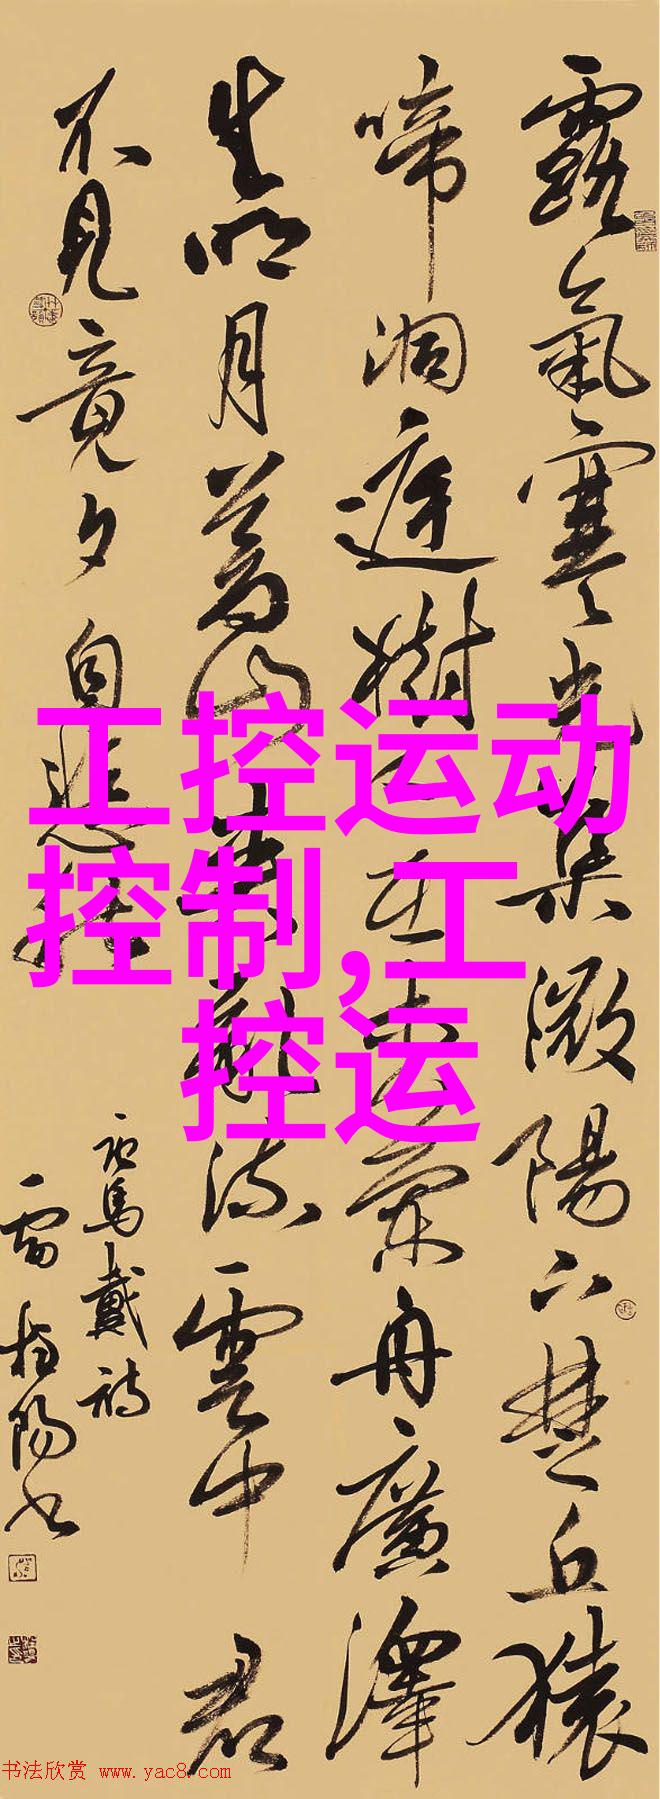 露氣寒光集微陽下楚丘猿
啼洞庭樹人在木蘭舟廣澤
生明月蒼山夾亂流雲中君
不見竟夕自悲秋
馬戴詩
雷 陽书
工控运动
控制,工
控运
书法欣赏 www.yac8.com